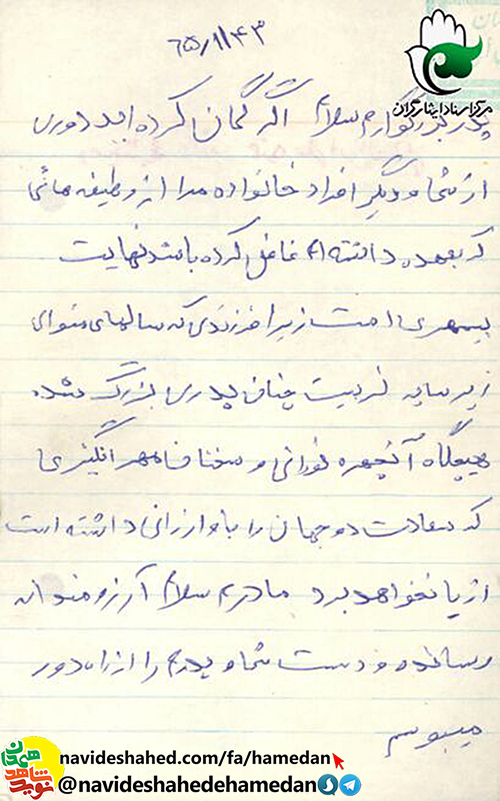 ۶۵/۱/۴۳
مرکز اسناد ایثارگران
پدر بزرگوارم سلام اگر گمان کرده‌اید دوری
از شما و دیگر افراد خانواده مرا از وظیفه هائی
که بعهده داشته‌ام غافل کرده باشد نهایت
بیمهری است زیرا فرزندی که سالهای متوالی
زیر سایه تربیت چنان پدری بزرگ شده
هیچگاه آنچهره نورانی و سخنان مهر انگیزی
که سعادت دو جهان را باو ارزانی داشته است
از یاد نخواهد برد مادرم سلام آرزومندانه
رسانده و دست شما و پدرم را از راه دور
میبوسم
نوید شاهد همدان
navideshahed.com/fa/hamedan
@navideshahedehamedan